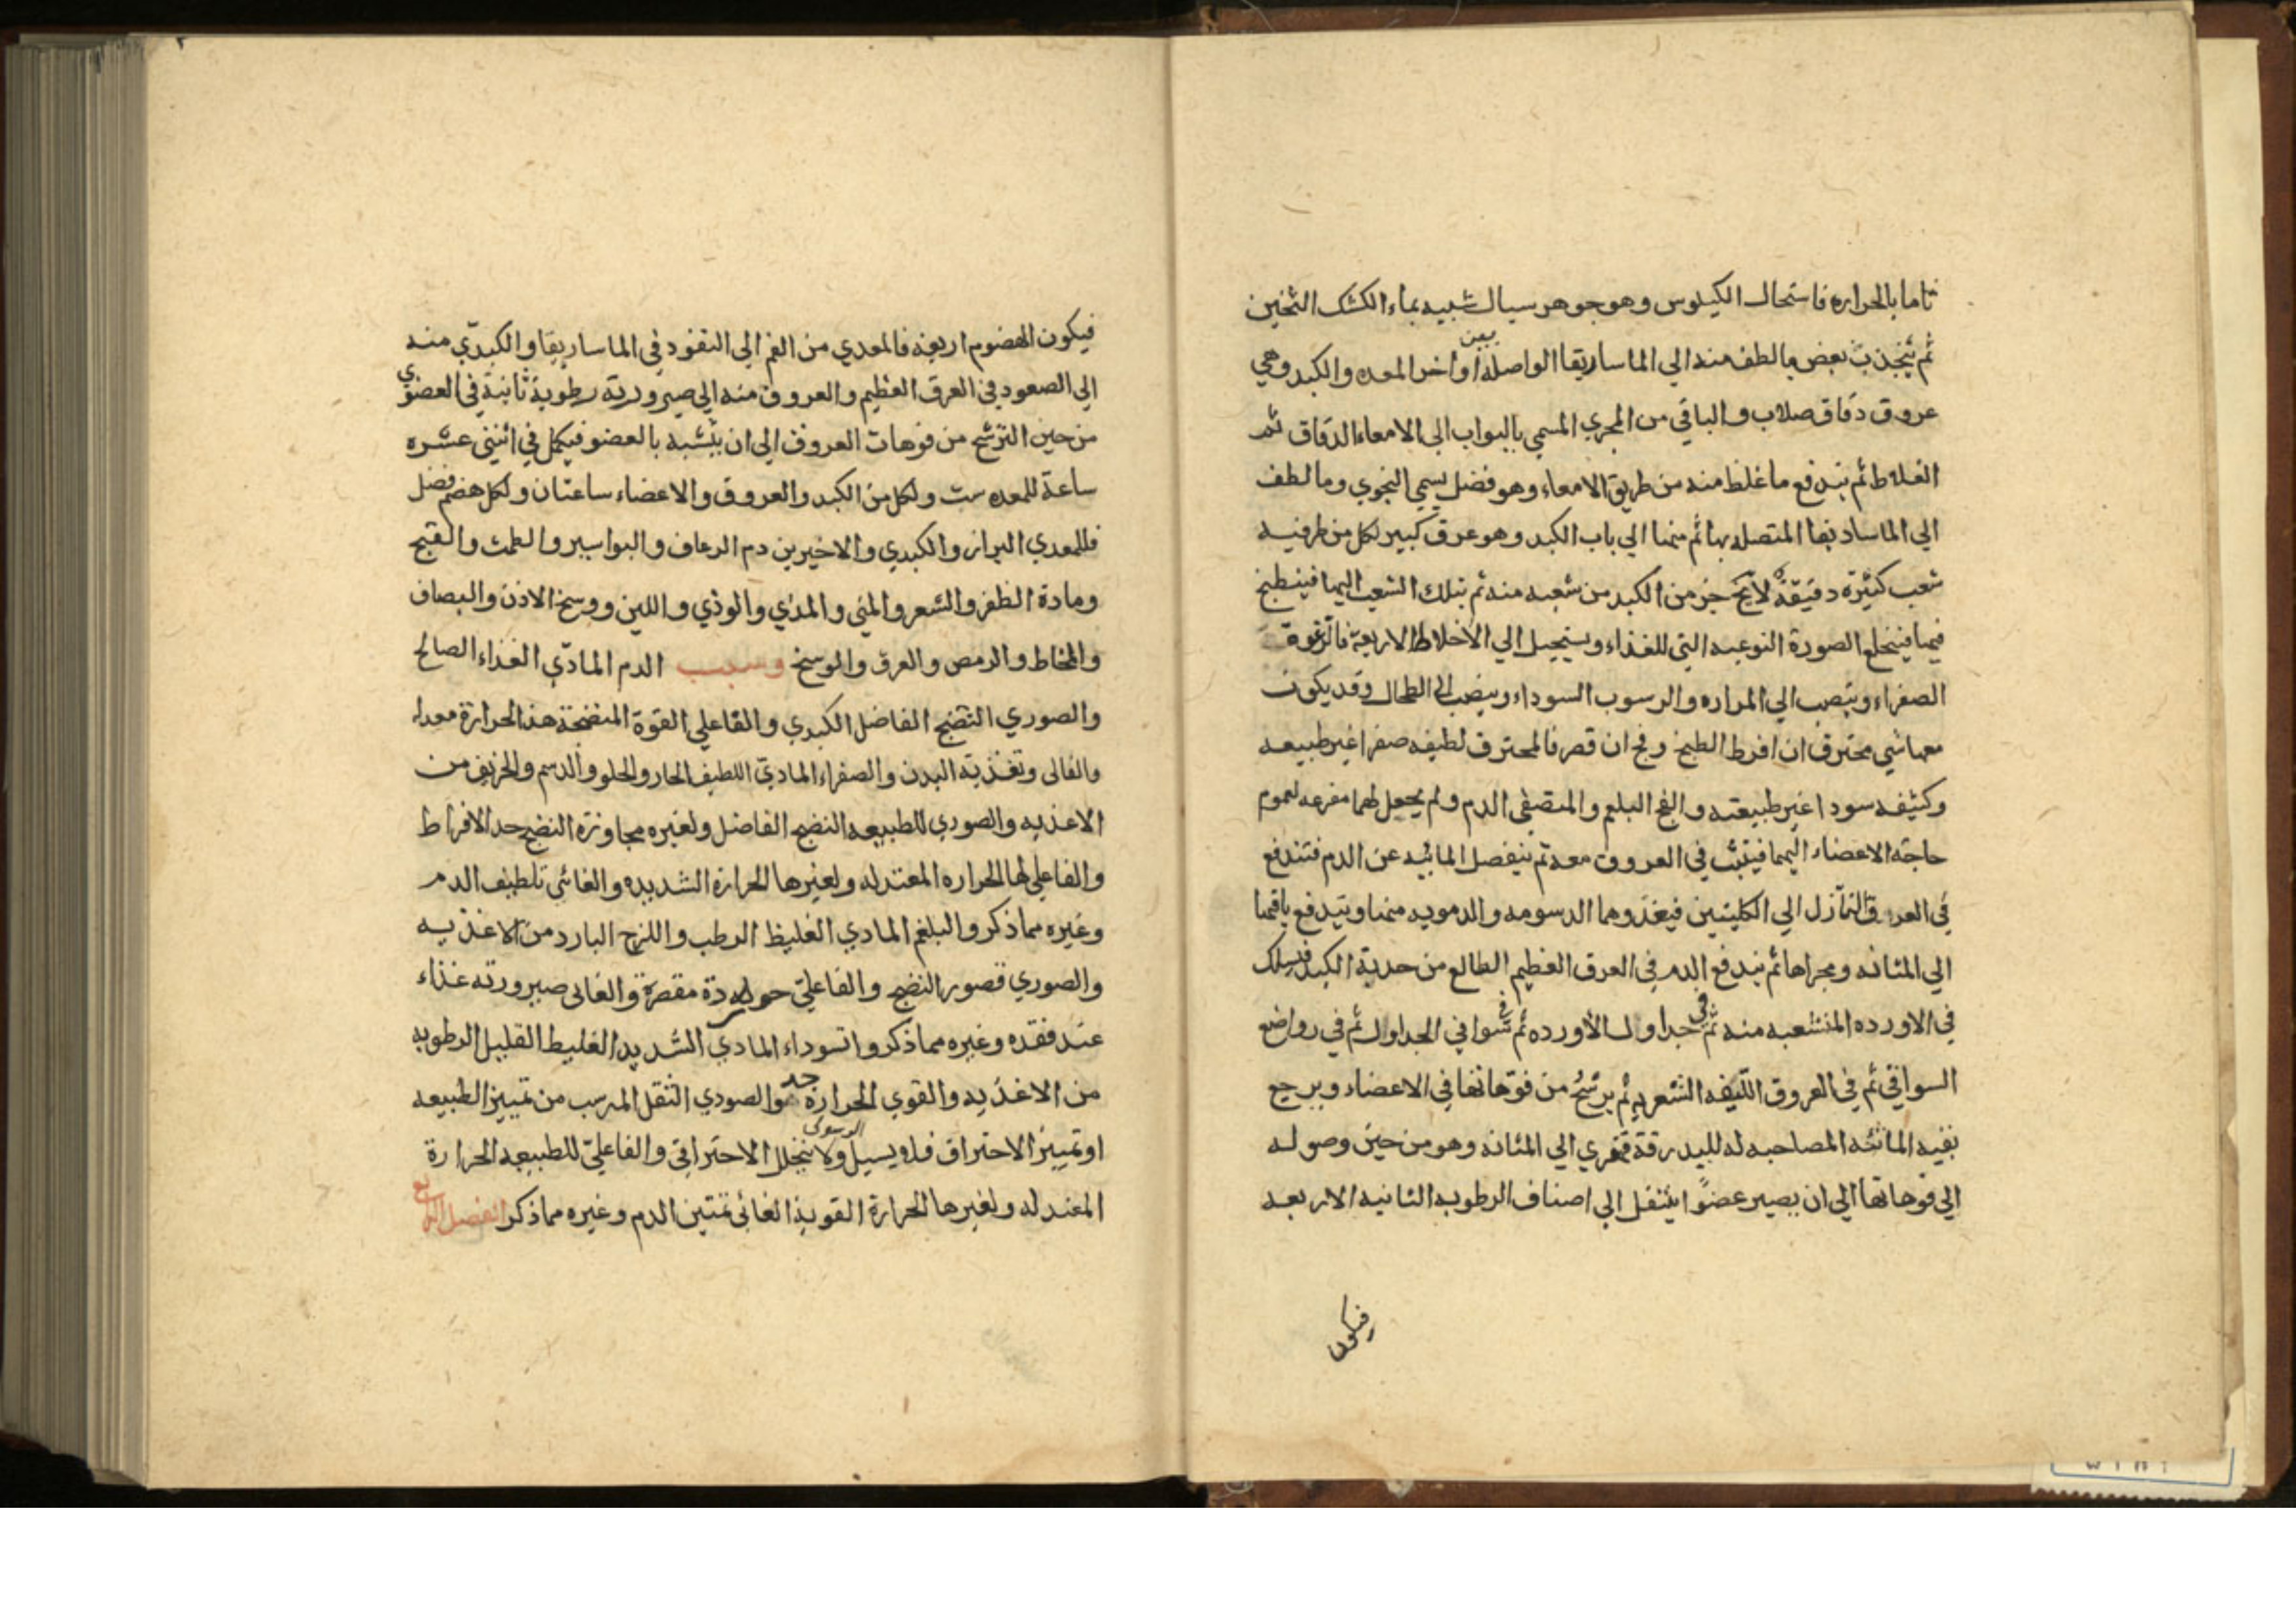 تاما بالحراره فاستحال الكيلوس وهو جوهر سيال شبيه بماء الكشك الثخين
ثم ينجذب بعض ما لطف منه الي الماساريقا الواصله بين اواخر المعده والكبد وهي
عروق دقاق صلاب والباقي من المجري المسمي بالبواب الي الامعاء الدقاق ثم
الغلاظ ثم يندفع ما غلظ منه من طريق الامعاء وهو فضل يسمي النجوي وما لطف
الي الماساريقا المتصله بها ثم منها الي باب الكبد وهو عرق كبير لكل من طرفيه
شعب كثيرة دقيقة لا يخ جز من الكبد من شعبه منه ثم بتلك الشعب اليها فينطبخ
فيها فينخلع الصورة النوعيه التي للغذاء ويستحيل الي الاخلاط الاربعة فالرغوة
الصفراء وينصب الي المراره والرسوب السوداء وينصب الي الطحال وقد يكون
معهاشي محترق ان افرط الطبخ وفج ان قصر فالمحترق لطيفه صفرا غير طبيعه
وكثيفه سودا غير طبيعته والفج البلغم والمتصفي الدم ولم يجعل لهما مفرغه لعموم
حاجه الاعضاء اليهما فينبث في العروق معه ثم ينفصل المائيه عن الدم فتندفع
في العرق النازل الي الكليتين فيغذوهما الدسومه والدمويه منها ويندفع باقيها
الي المثانه ومجراها ثم يندفع الدم في العرق العظيم الطالع من حدبة الكبد فيسلك
في الاورده المنشعبه منه ثم في جداول الاورده ثم في سواقي الجداول ثم في رواضع
السواقي ثم في العروق الليفه الشعريه ثم يرشح من فوهاتها في الاعضاء ويرجع
بقيه المائيه المصاحبه له للبيدرقة قهقري الي المثانه وهو من حين وصوله
الي فوهاتها الي ان يصير عضوا ينتقل الي اصناف الرطوبه الثانيه الاربعه
فيكون
فيكون الهضوم اربعة فالمعدي من الفم الي النفوذ في الماساريقا والكبدي منه
الي الصعود في العرق العظيم والعروق منه الي صيرورته رطوبة ثانية في العضوي
من حين الترشح من فوهات العروق الي ان يتشبه بالعضو فيكمل في اثنتي عشره
ساعة للمعده ست ولكل من الكبد والعروق والاعضاء ساعتان ولكل هضم فضل
فللمعدي البراز والكبدي والاخيرين دم الرعاف والبواسير والطمث والقيح
ومادة الظفر والشعر والمني والمذي والوذي واللبن ووسخ الاذن والبصاق
والمخاط والرمص والعرق والوسخ وسبب الدم المادي الغذاء الصالح
والصوري النضج الفاضل الكبدي والفاعلي القوة المنضجة هذ الحرارة معدله
والغائي وتغذيته البدن والصفراء المادي اللطيف الحار والحلو والدسم والحريف من
الاغذيه والصوري للطبيعه النضج الفاضل ولغيره مجاوزة النضج حد الافراط
والفاعلي لها الحراره المعتدله ولغيرها الحرارة الشديده والغائي تلطيف الدم
وغيره مما ذكر والبلغم المادي الغليظ الرطب واللزج البارد من الاغذيه
والصوري قصور النضج والفاعلي حرارة مقصرة والغائي صيرورته غذاء
عند فقده وغيره مما ذكر والسوداء المادي الشديد الغليظ القليل الرطوبه
من الاغذيه والقوي الحرارة جدا والصوري الثفل المرسب من تمييز الطبيعه
او تمييز الاحتراق فلا يسيل ولا يتحلل الرسوبي الاحتراقي والفاعلي للطبيعه الحرارة
المعتدله ولغيرها الحرارة القوية الغائي تمتين الدم وغيره مما ذكر الفصل الرابع